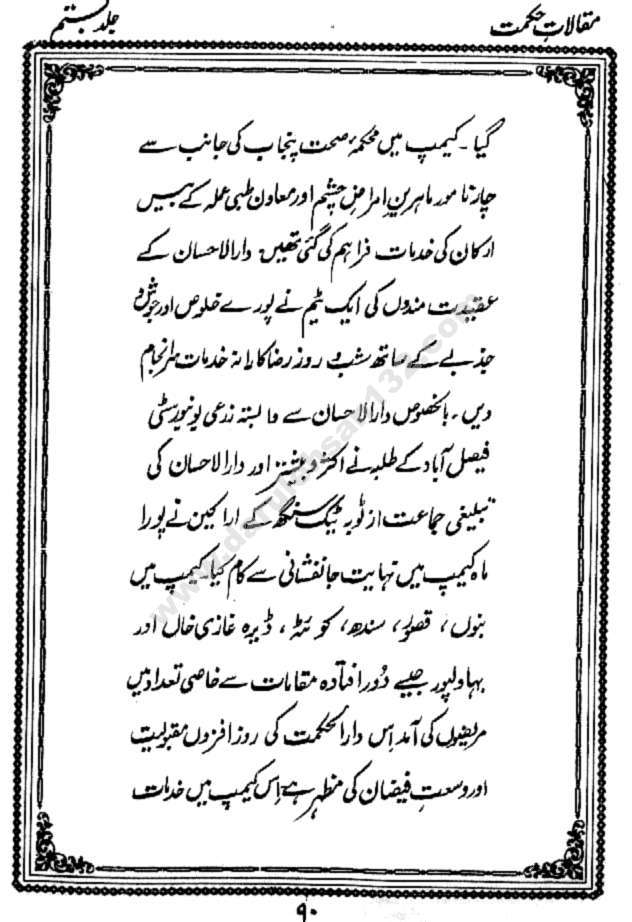 مقالاتِ حکمت
جلد ہشتم
گیا۔ کیمپ میں محکمۂ صحت پنجاب کی جانب سے
چار نامور ماہرینِ امراضِ چشم اور معاون طبی عملہ کے بیس
ارکان کی خدمات فراہم کی گئی تھیں۔ دارالاحسان کے
عقیدت مندوں کی ایک ٹیم نے پورے خلوص اور جوش و
جذبے کے ساتھ شب و روز رضاکارانہ خدمات سرانجام
دیں۔ بالخصوص دارالاحسان سے وابستہ زرعی یونیورسٹی
فیصل آباد کے طلبہ نے اکثر و بیشتر اور دارالاحسان کی
تبلیغی جماعت از ٹوبہ ٹیک سنگھ کے اراکین نے پورا
ماہ کیمپ میں نہایت جانفشانی سے کام کیا۔ کیمپ میں
بنوں، قصور، سندھ، کوئٹہ، ڈیرہ غازی خاں اور
بہاولپور جیسے دُور افتادہ مقامات سے خاصی تعداد میں
مریضوں کی آمد اِس دارالحکمت کی روز افزوں مقبولیت
اور وسعتِ فیضان کی مظہر ہے۔ اِس کیمپ میں خدمات
۹۰